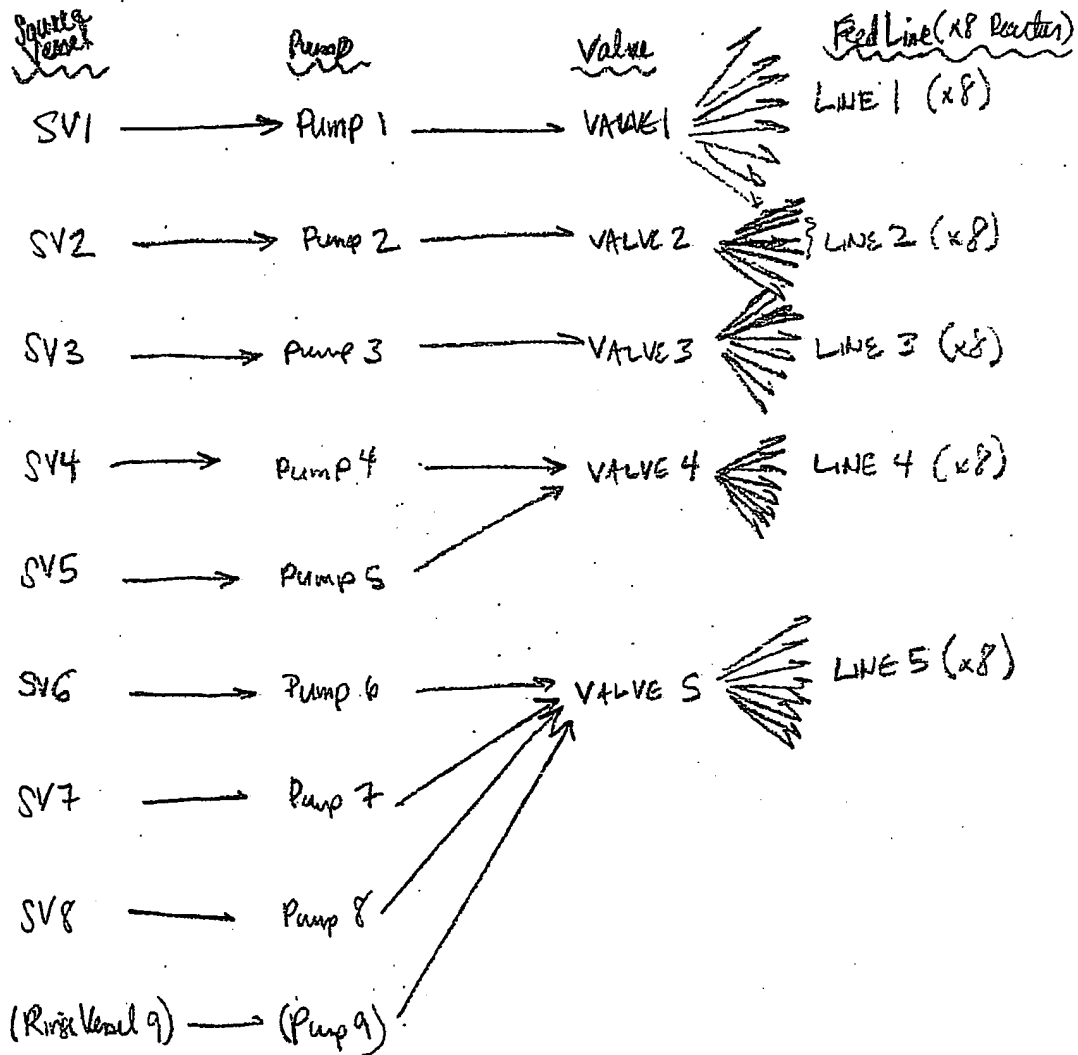 Source Vessel Pump Valve Feed Line (x8 Reactors)
SV1 Pump 1 VALVE 1 LINE 1 (x8)
SV2 Pump 2 VALVE 2 LINE 2 (x8)
SV3 Pump 3 VALVE 3 LINE 3 (x8)
SV4 Pump 4 VALVE 4 LINE 4 (x8)
SV5 Pump 5
SV6 Pump 6 VALVE 5 LINE 5 (x8)
SV7 Pump 7
SV8 Pump 8
(Rinse Vessel 9) (Pump 9)